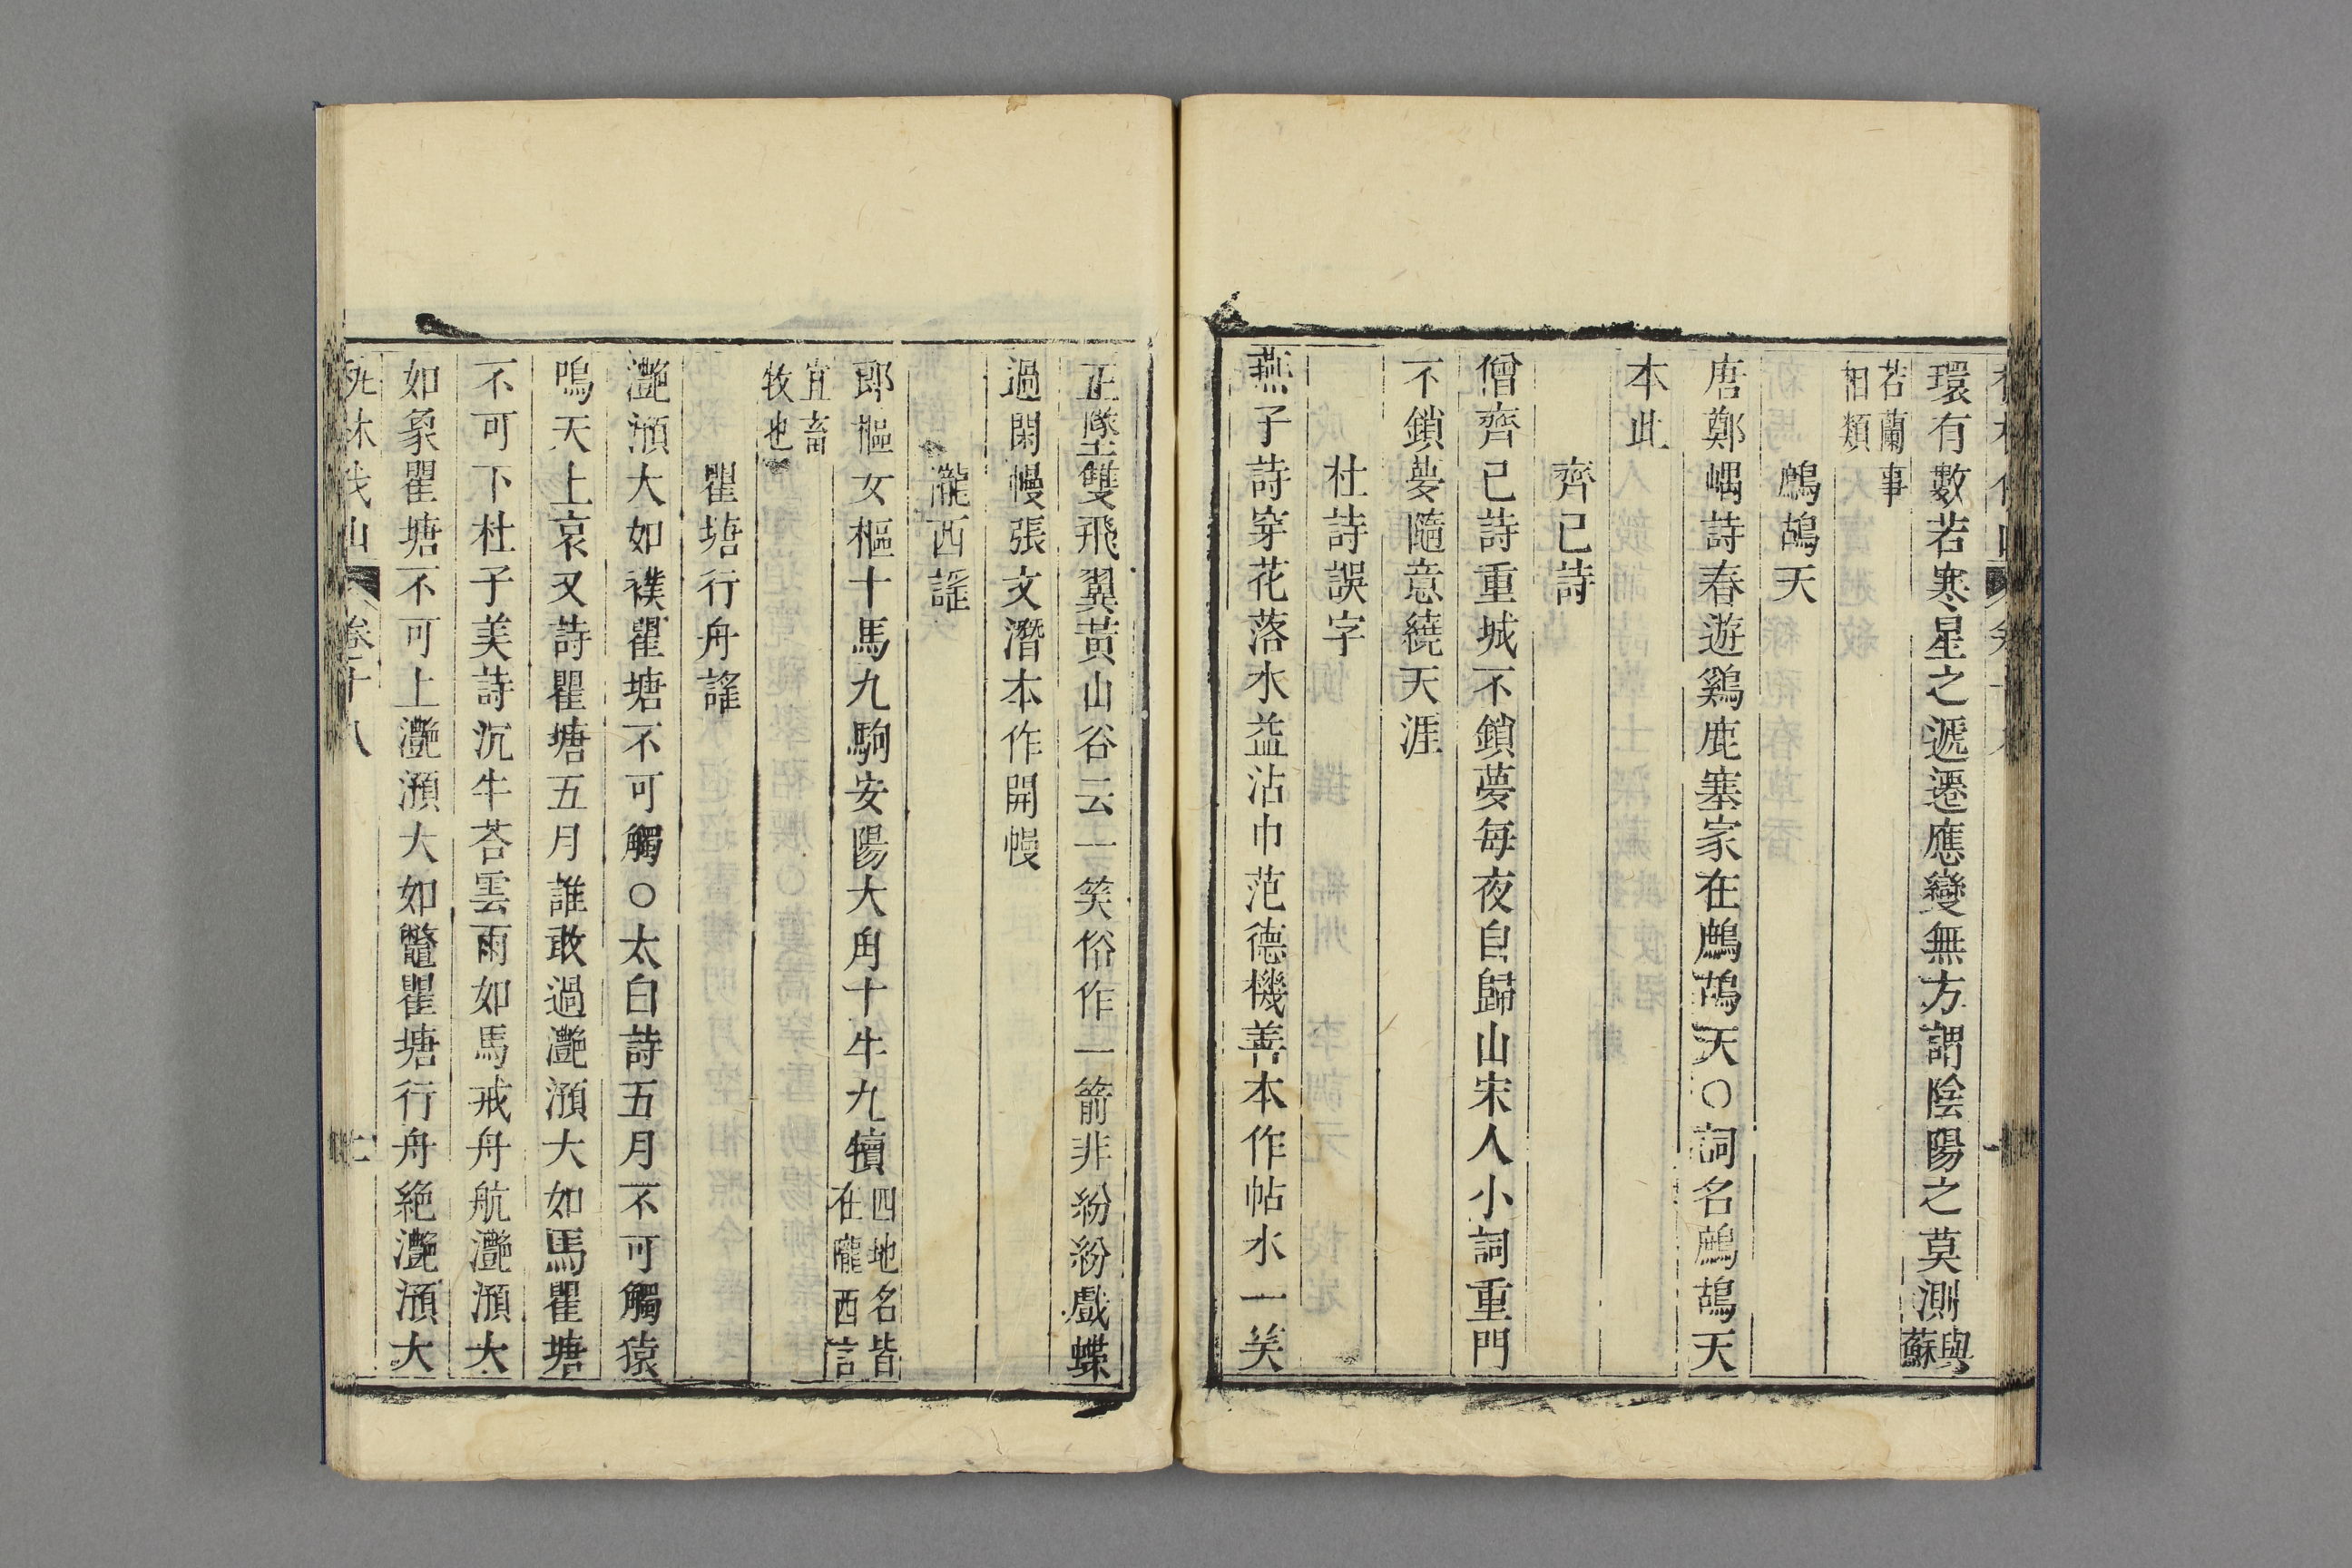 環有數若寒星之遞遷應變無方謂陰陽之莫測與蘇
若蘭事相類
鷓鴣天
唐鄭嵎詩春遊鷄鹿塞家在鷓鴣天○詞名鷓鴣天
本此
齊已詩
僧齊已詩重城不鎖夢每夜自歸山宋人小詞重門
不鎖夢隨意繞天涯
杜詩誤字
燕子詩穿花落水益沾巾范德機善本作帖水一笑
正墜雙飛翼黃山谷云一笑俗作一箭非紛紛戲蝶
過閑幔張文潛本作開幔
瀧西謡
郎樞女樞十馬九駒安陽大角十牛九犢四地名皆在隴西言
宜畜牧也
瞿塘行舟謡
灔澦大如襆瞿塘不可觸○太白詩五月不可觸猿
鳴天上哀又詩瞿塘五月誰敢過灔澦大如馬瞿塘
不可下杜子美詩沉牛荅雲雨如馬戒舟航灔澦大
如象瞿塘不可上灔澦大如鼈瞿塘行舟絶灔澦大
卷十八